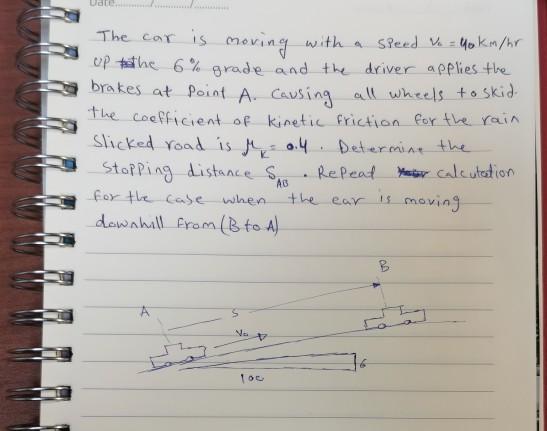 Date
The car is moving with a speed V₀ = 40 km/hr
up the 6% grade and the driver applies the
brakes at Point A. Causing all wheels to skid.
the coefficient of kinetic friction for the rain
Slicked road is μK = 0.4. Determine the
Stopping distance SAB. Repeat calculation
for the case when the car is moving
downhill from (B to A)
B
A
S
V₀
6
100